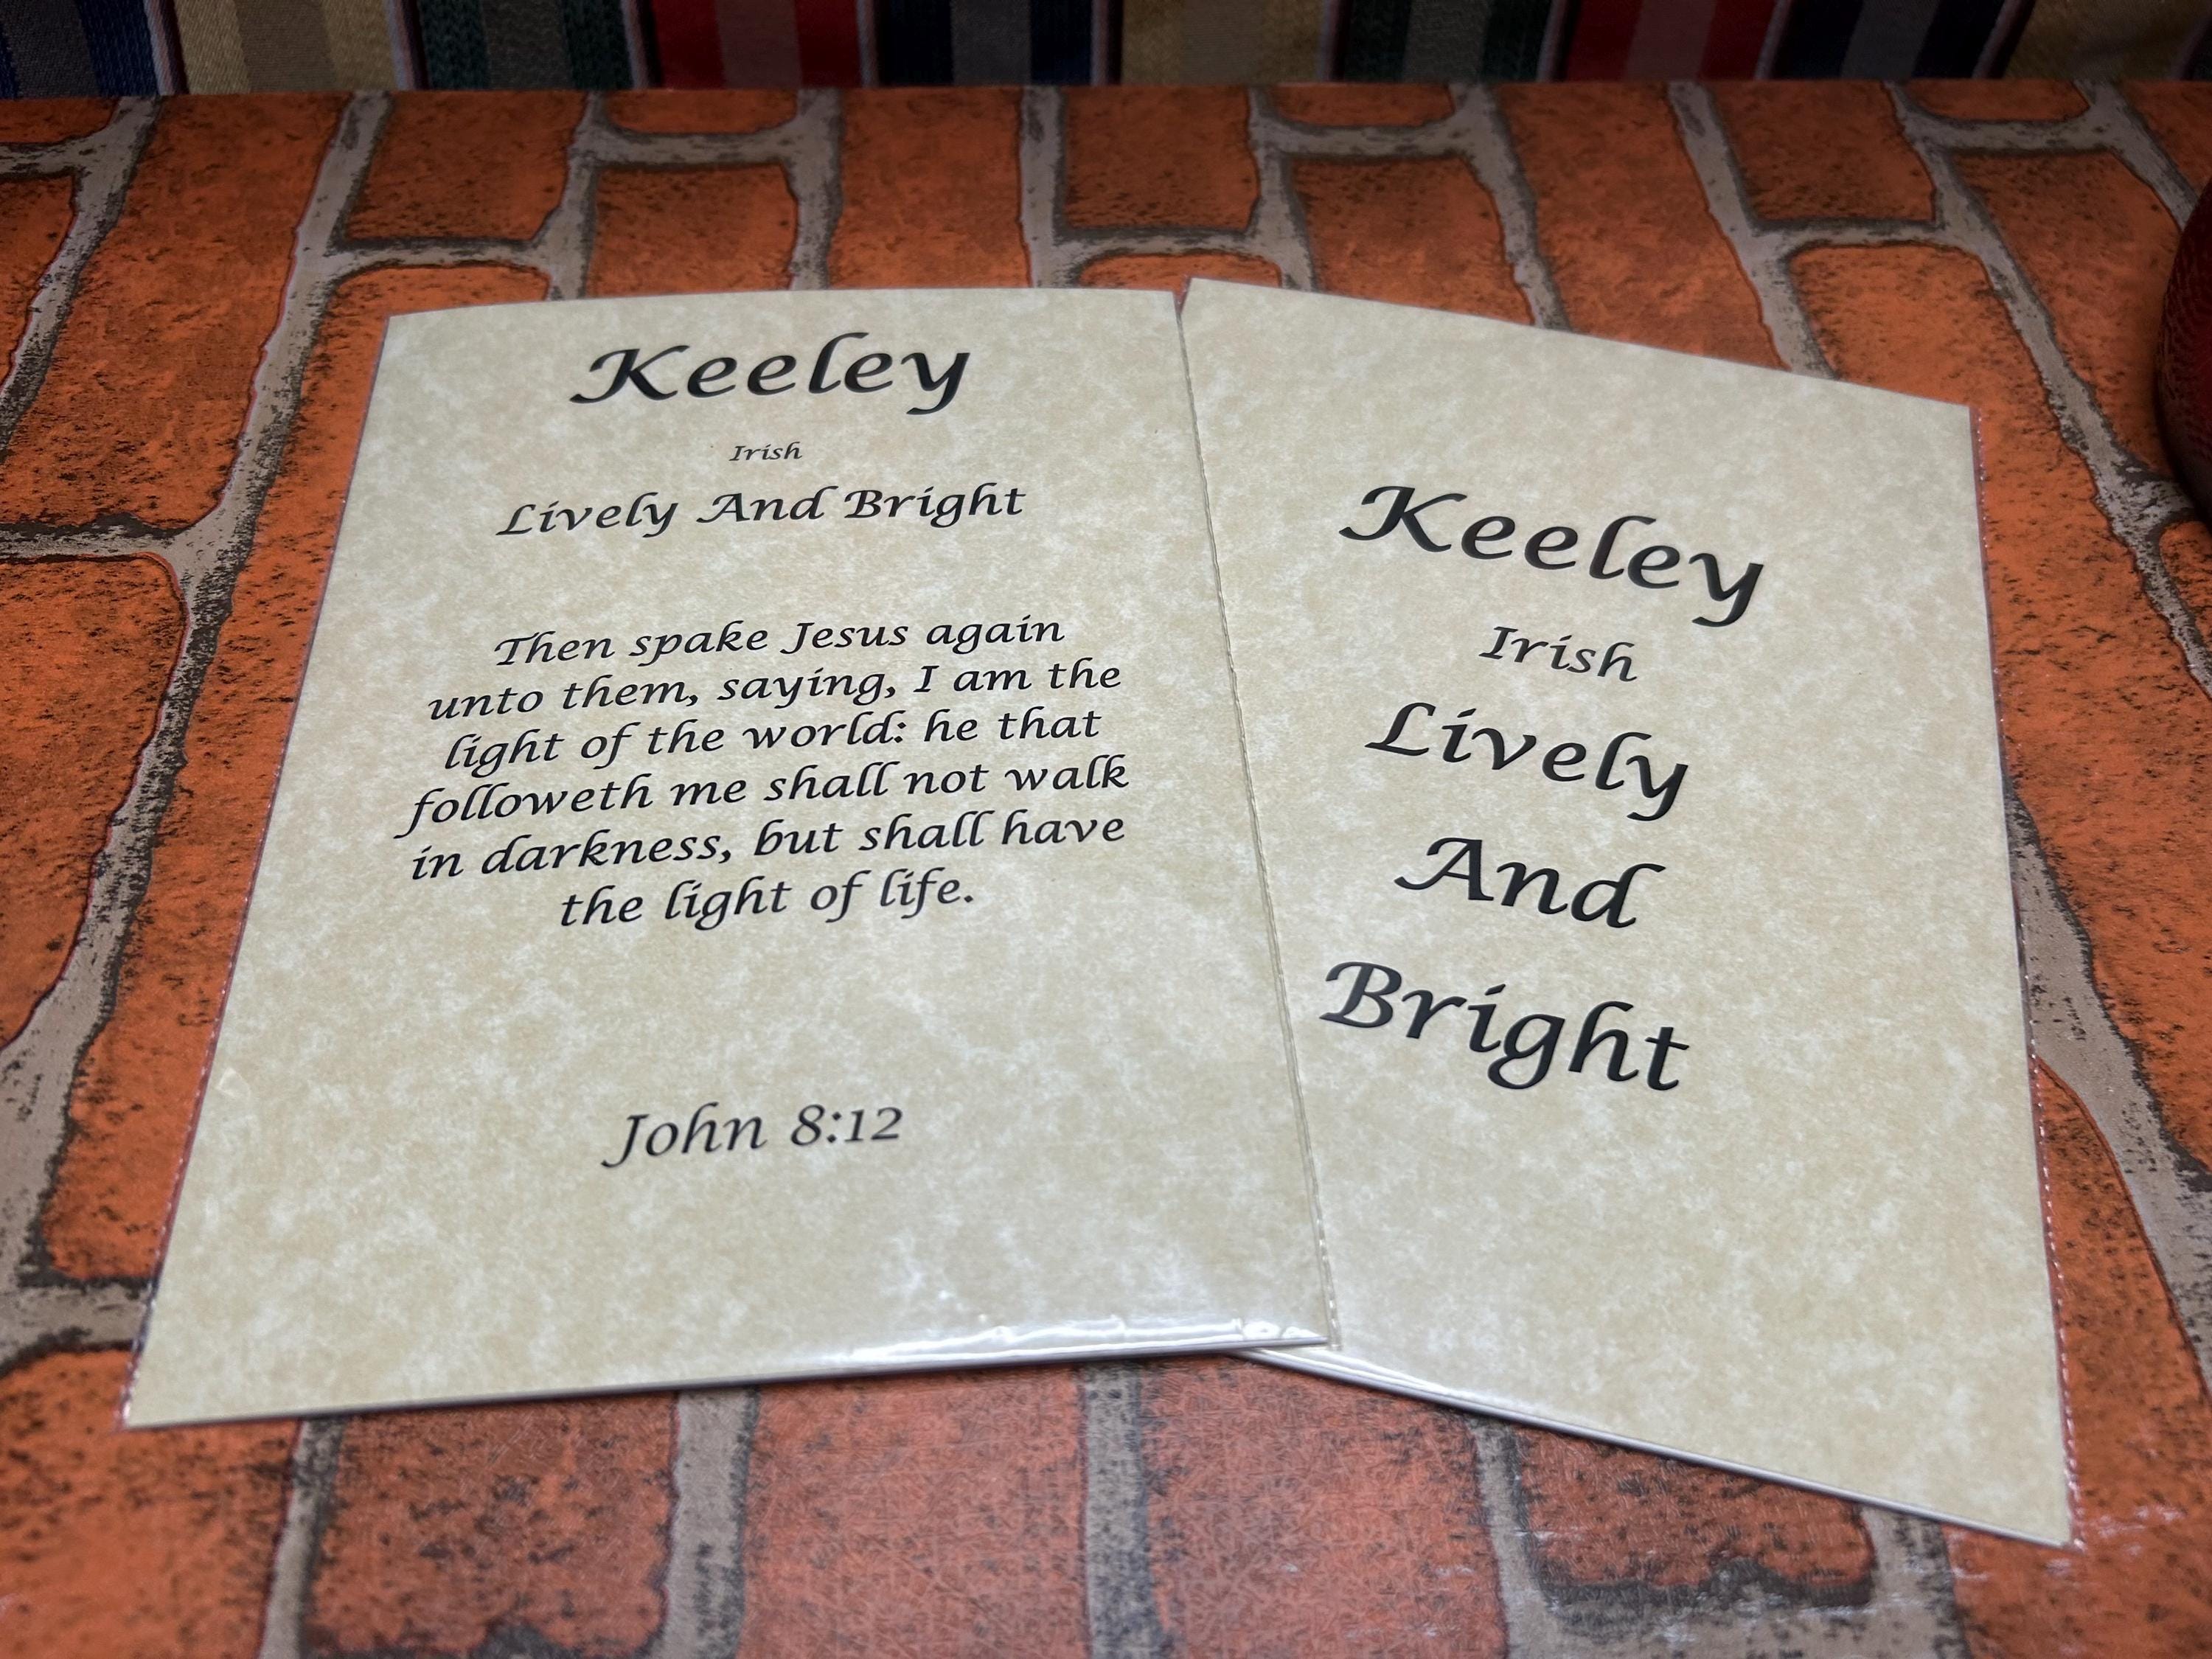 Keeley
Irish
Lively And Bright
Then spake Jesus again
unto them, saying, I am the
light of the world: he that
followeth me shall not walk
in darkness, but shall have
the light of life.
John 8:12
Keeley
Irish
Lively
And
Bright